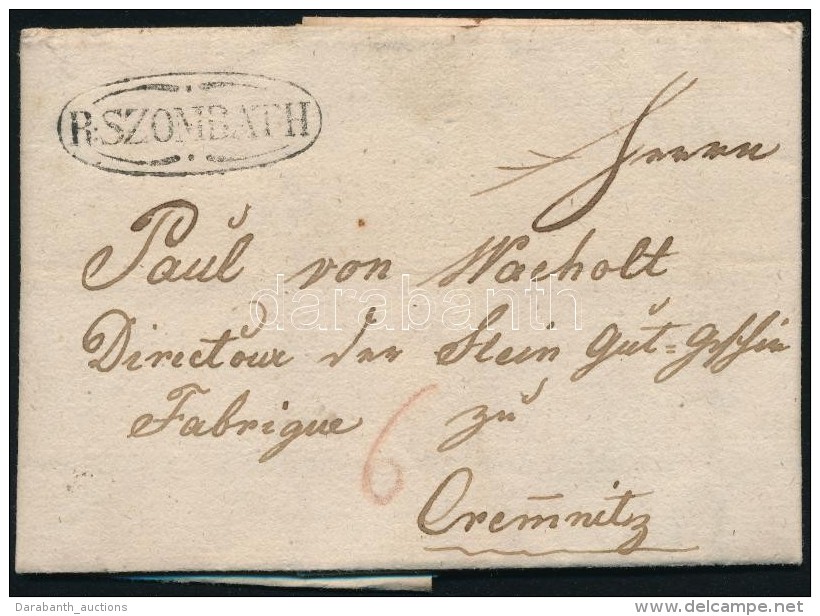 R:SZOMBATH
Herrn
Paul von Wacholt
darabanth
Directour der Stein gut=geschir
Fabrique zu
6
Cremnitz
Darabanth_auctions
delcampe.net